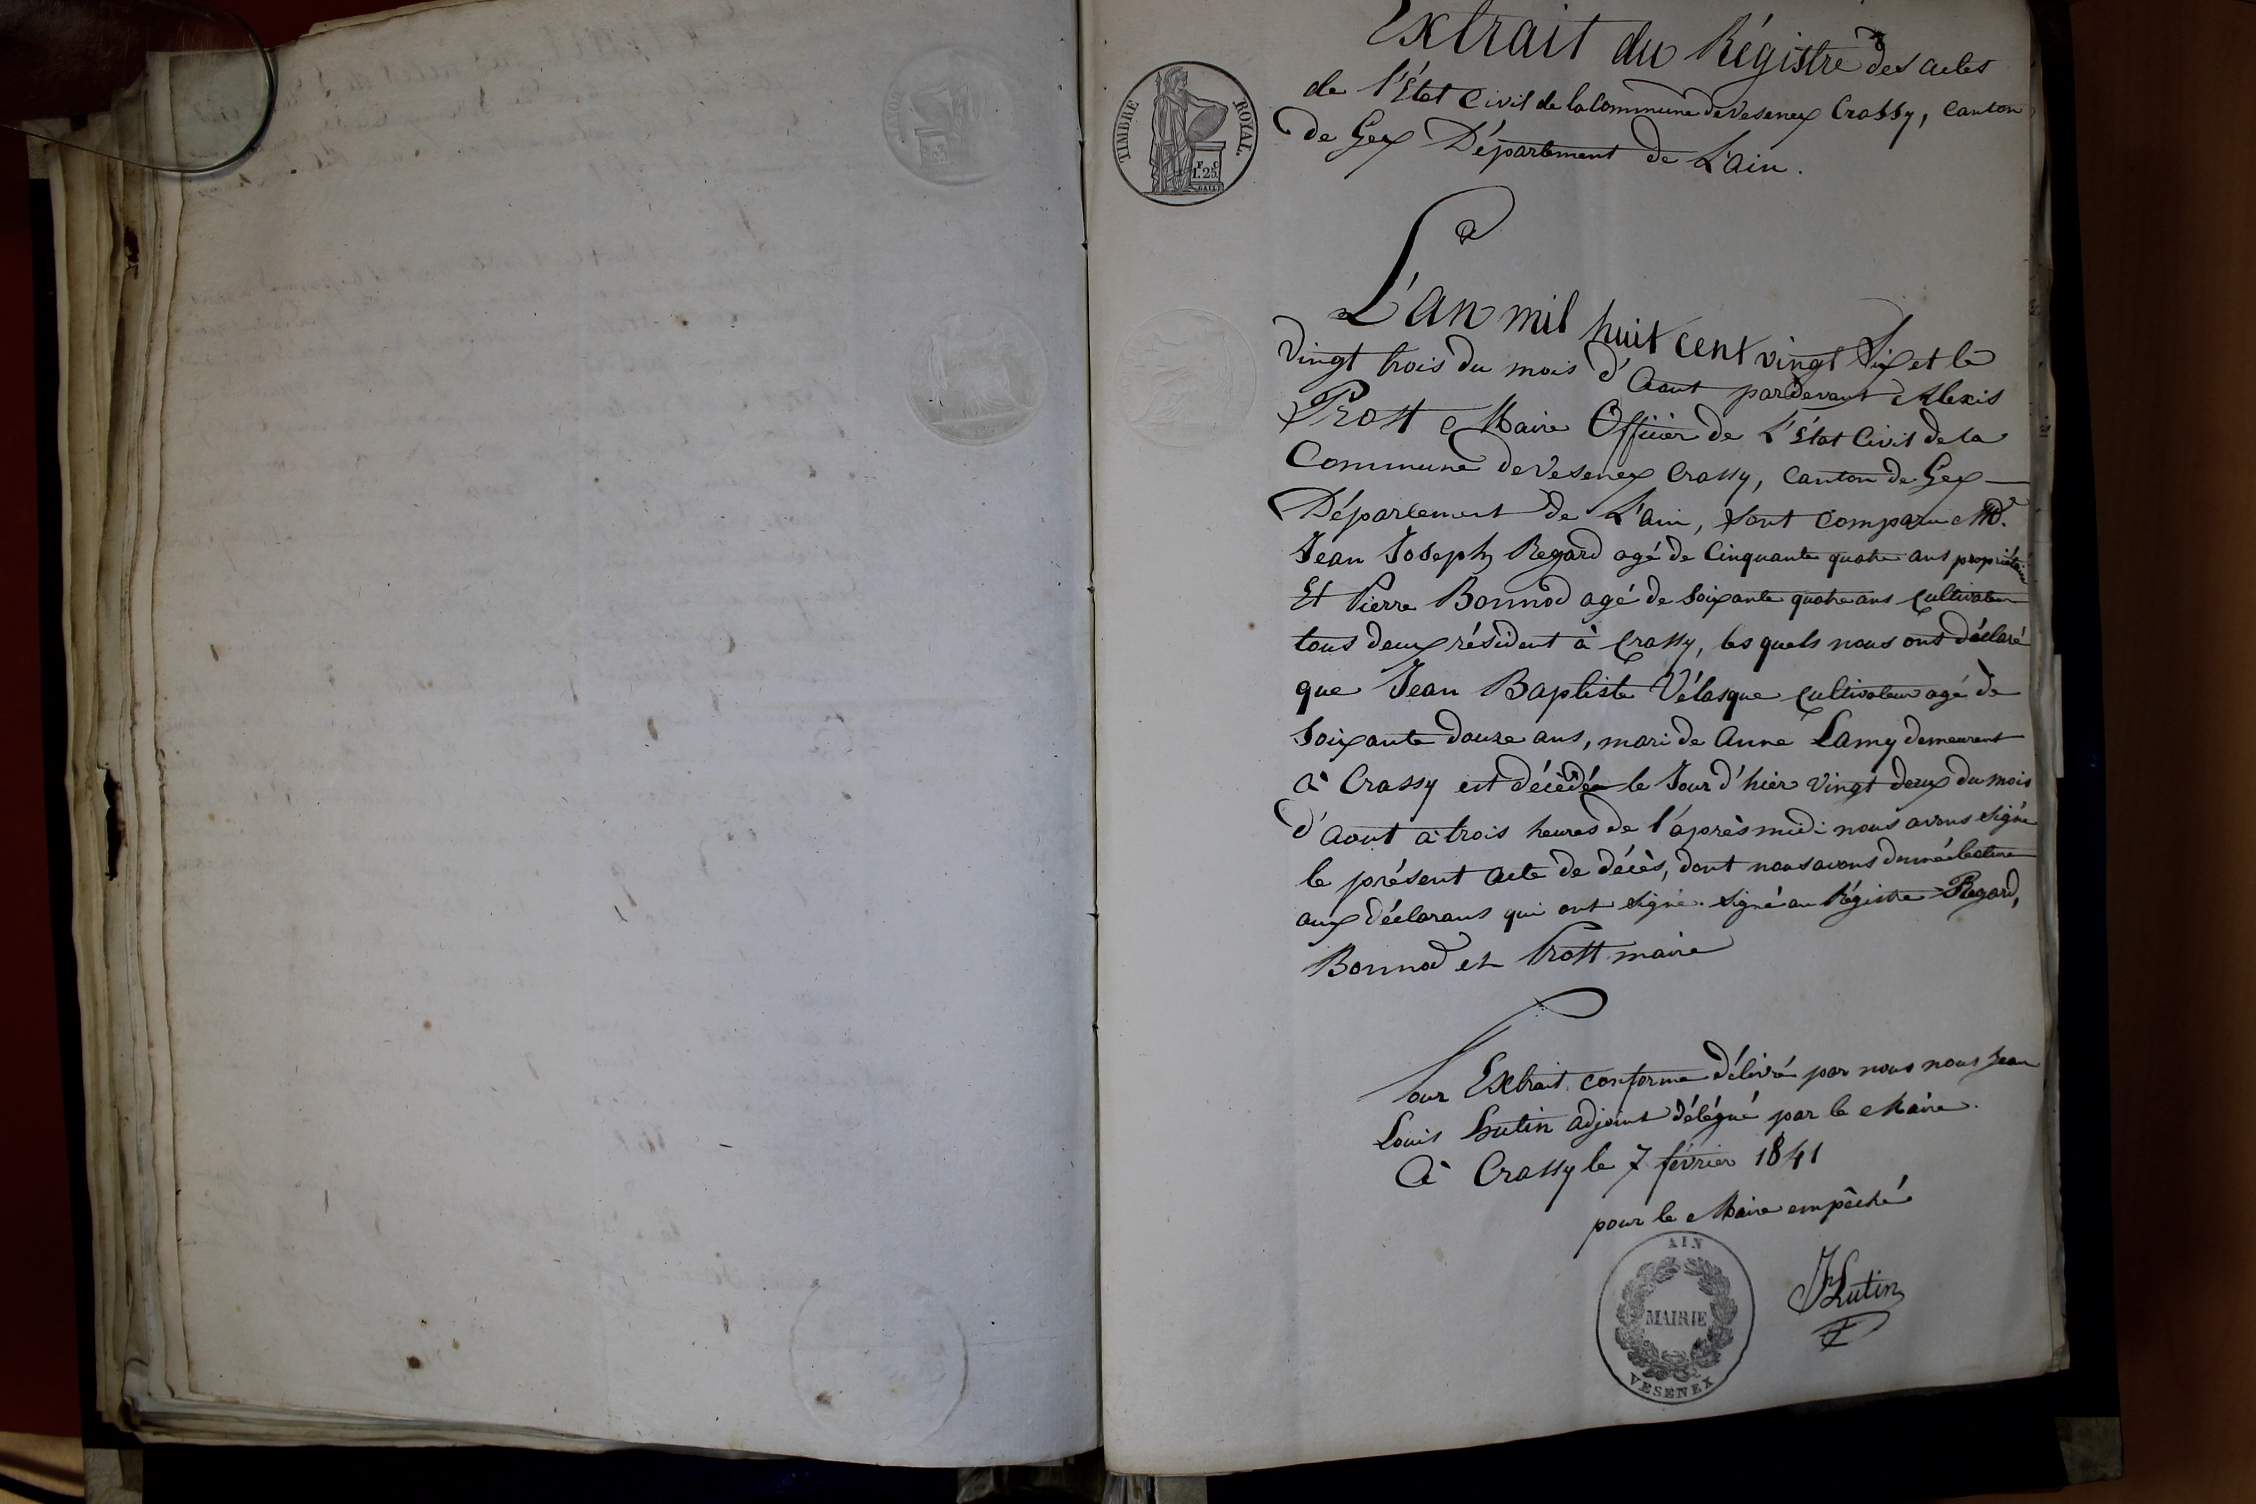 Extrait du Régistre des actes
de l'État Civil de la Commune de Vesenex Crassy, Canton
de Gex Département de L'ain.
TIMBRE ROYAL.
F. C.
1.25.
L'an mil huit cent vingt Six et le
vingt trois du mois d'Aout pardevant Alexis
Prost Maire Officier de L'État Civil de la
Commune de Vesenex Crassy, Canton de Gex
Département de L'ain, sont comparu
Jean Joseph Regard agé de Cinquante quatre ans propriétaire
Et Pierre Bonnod agé de Soixante quatre ans Cultivateur
tous deux résident à Crassy, les quels nous ont déclaré
que Jean Baptiste Vélasque Cultivateur agé de
Soixante douze ans, mari de Anne Lamy demeurant
à Crassy est décédé le Jour d'hier Vingt deux du mois
d'Aout à trois heures de l'après midi nous avons signé
le présent acte de décès, dont nous avons donné lecture
aux déclarans qui ont signé. signé au Régistre Regard,
Bonnod et Prost maire
Pour Extrait conforme délivré par nous nous Jean
Louis Hutin adjoint délégué par le Maire.
à Crassy le 7 février 1841
pour le Maire empêché
AIN
MAIRIE
VESENEX
Hutin